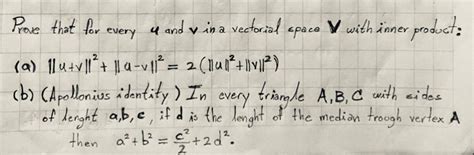 Prove that for every u and v in a vectorial space V with inner product:
(a) ||u+v||² + ||u-v||² = 2(||u||²+||v||²)
(b) (Apollonius identity) In every triangle A,B,C with sides
of lenght a,b,c, if d is the lenght of the median trough vertex A
then a²+b² = c²/2 + 2d².